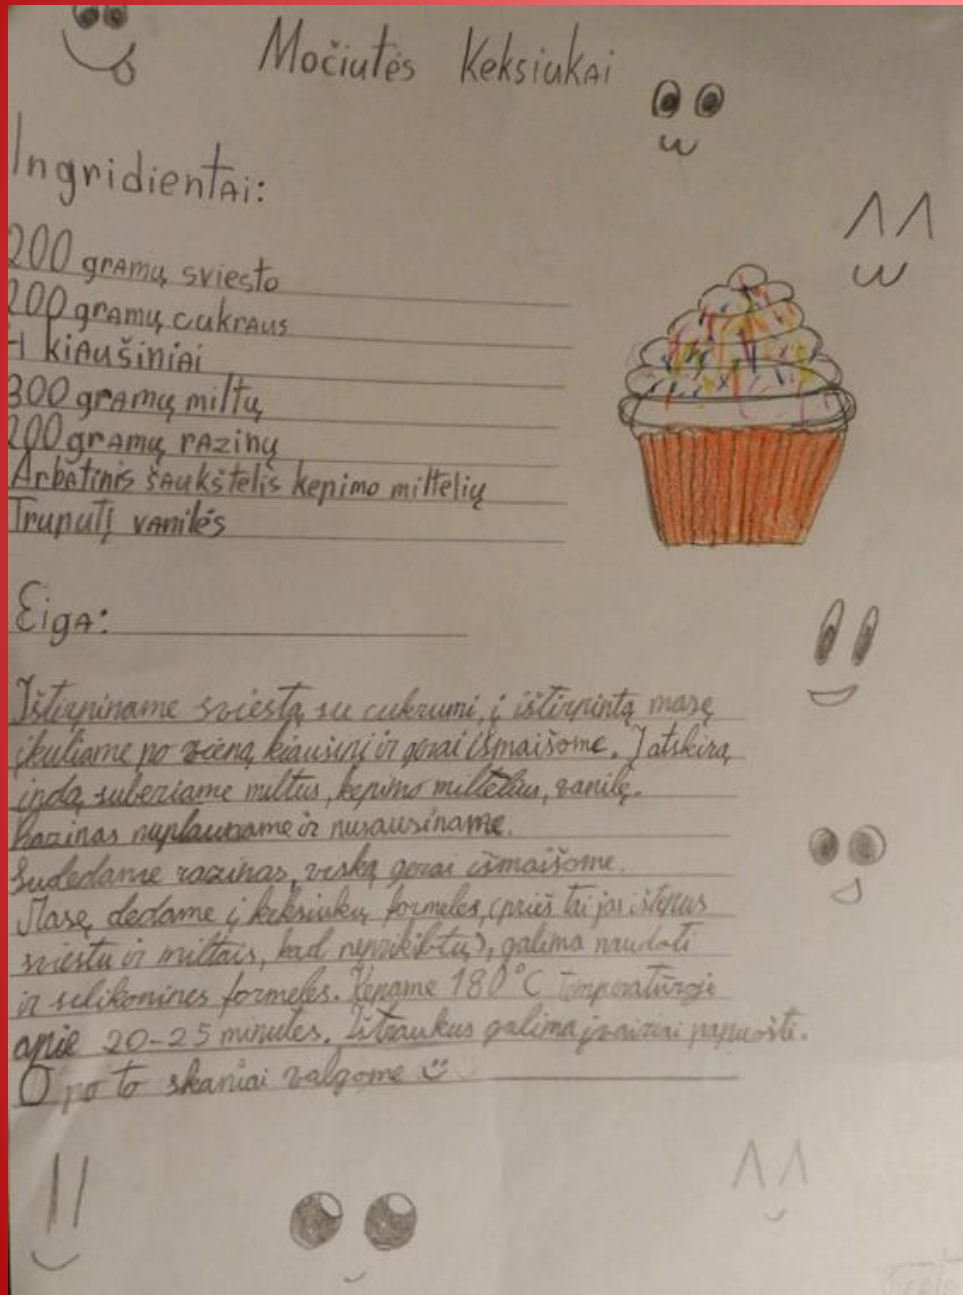 Močiutės Keksiukai
Ingridientai:
200 gramų sviesto
200 gramų cukraus
4 kiaušiniai
300 gramų miltų
200 gramų razinų
Arbatinis šaukštelis kepimo miltelių
Truputį vanilės
Eiga:
Ištirpiname sviestą su cukrumi, į ištirpintą masę
įkuliame po vieną kiaušinį ir gerai išmaišome. Į atskirą
indą suberiame miltus, kepimo miltelius, vanilę.
Razinas nuplauname ir nusausiname.
Sudedame razinas, viską gerai išmaišome.
Masę dedame į keksiukų formeles, (prieš tai jas ištepus
sviestu ir miltais, kad nepribibtų), galima naudoti
ir silikonines formeles. Kepame 180°C temperatūroje
apie 20-25 minutes. Ištraukus galima įvairiai papuošti.
O po to skaniai valgome